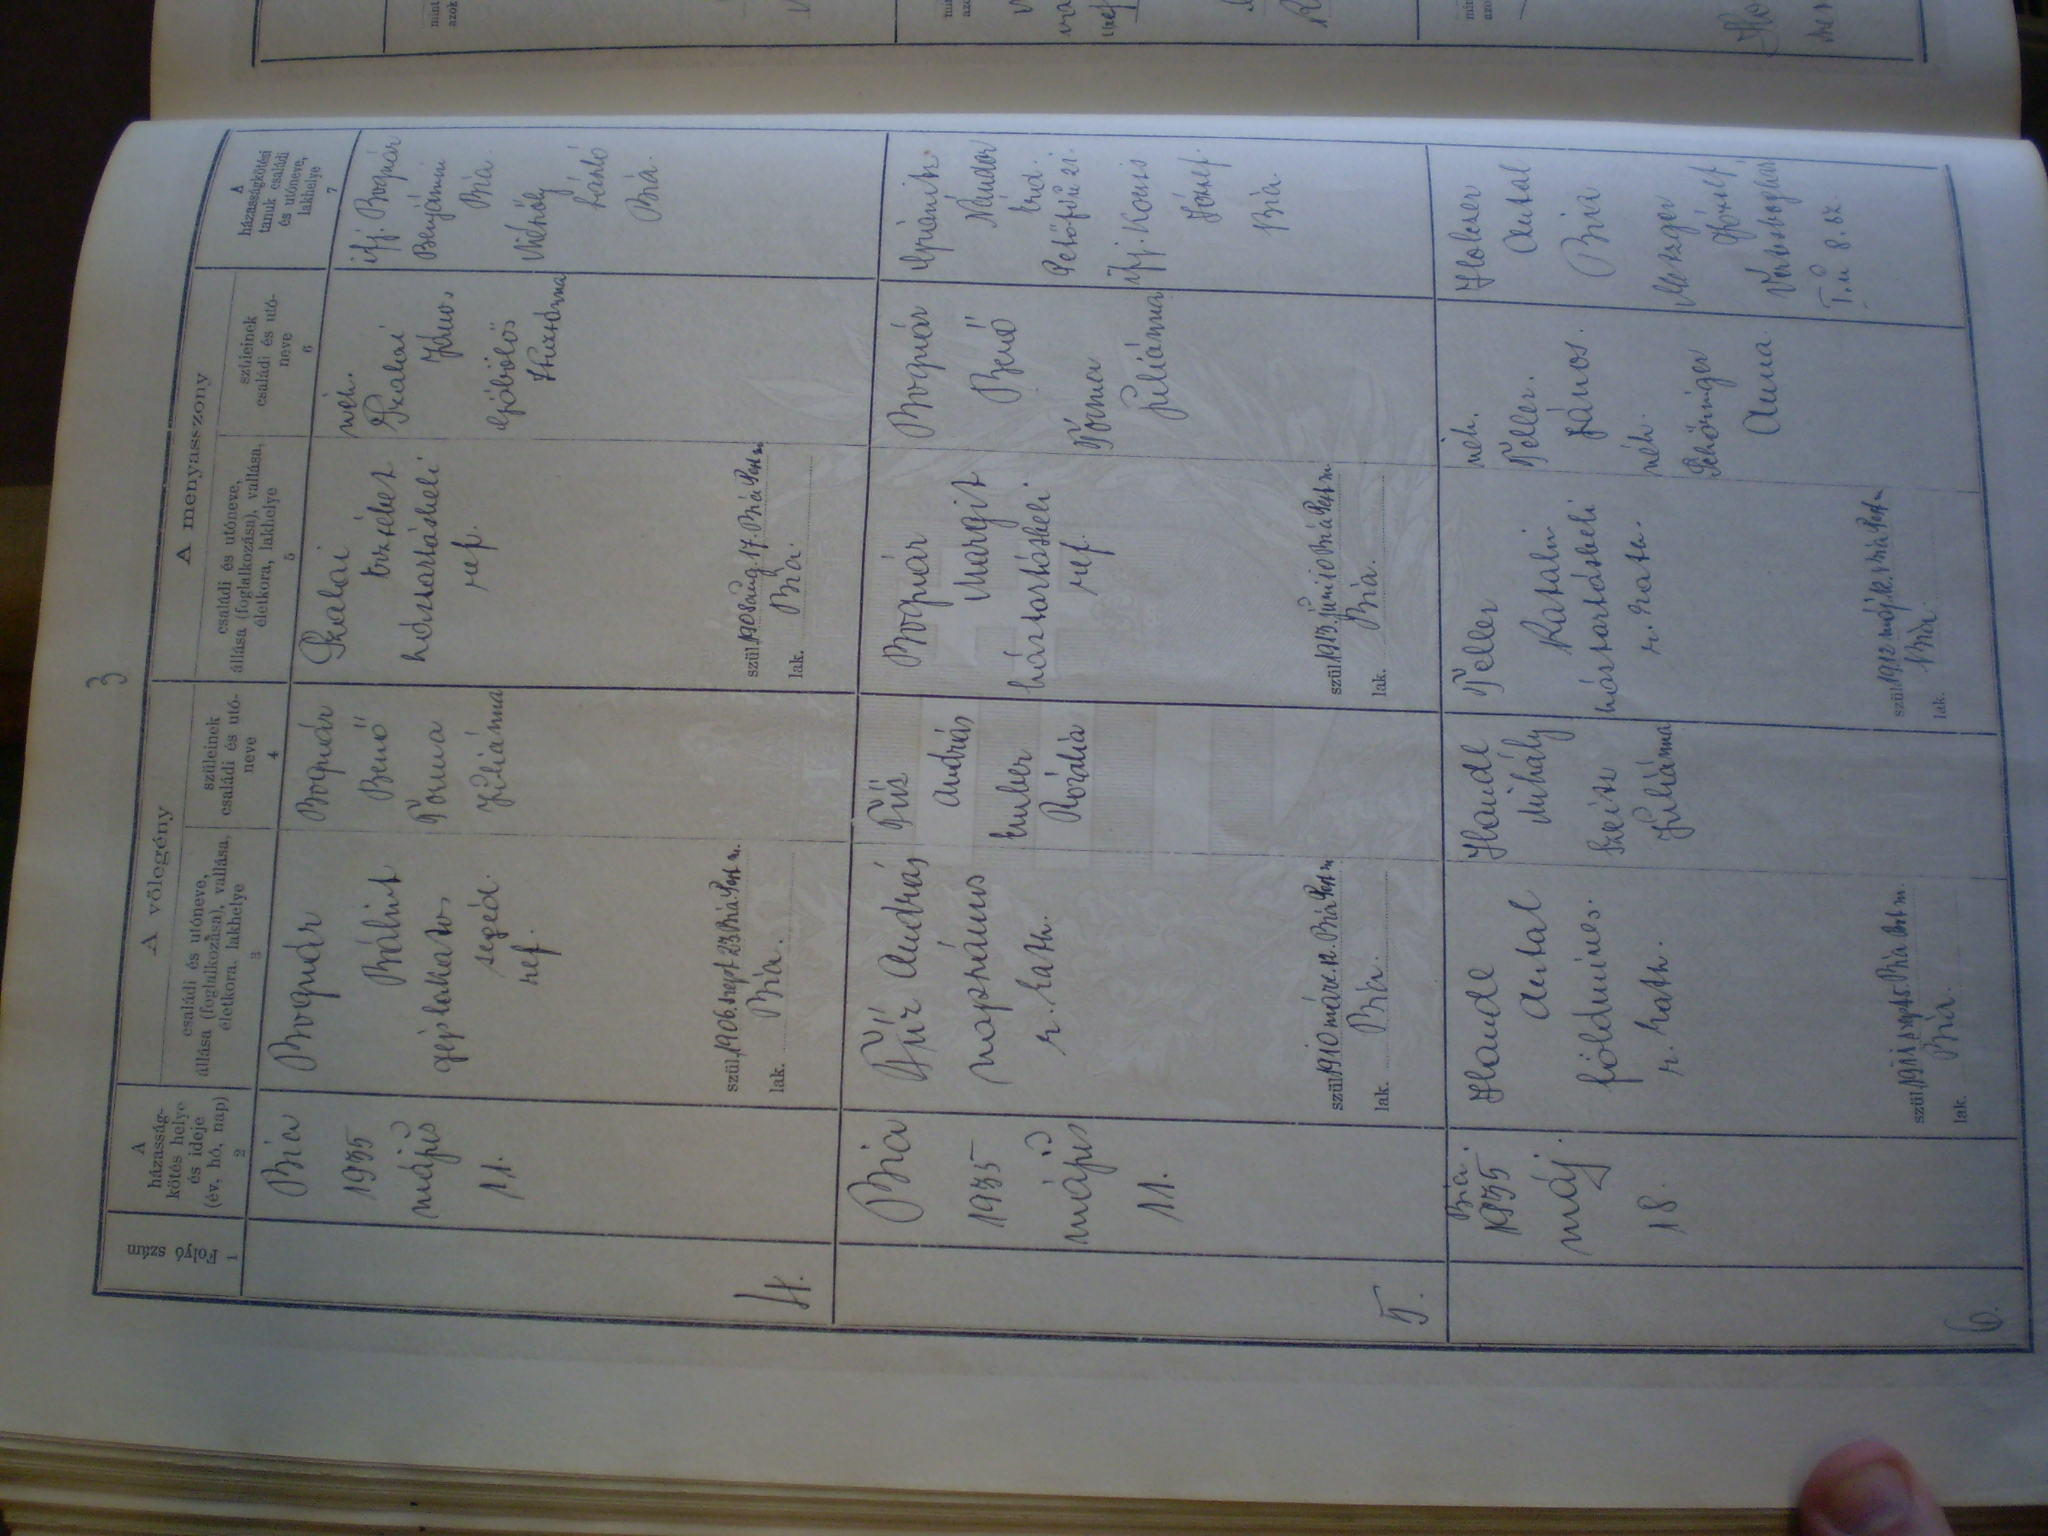 3
A
Folyó szám
1
A
házasság-
kötés helye
és ideje
(év, hó, nap)
2
A vőlegény
családi és utóneve,
állása (foglalkozása), vallása,
életkora, lakhelye
3
szüleinek
családi és utó-
neve
4
A menyasszony
családi és utóneve,
állása (foglalkozása), vallása,
életkora, lakhelye
5
szüleinek
családi és utó-
neve
6
A
házasságkötési
tanuk családi
és utóneve,
lakhelye
7
4.
Bia
1935
május
11.
Bognár
Bálint
géplakatos
segéd.
ref.
szül. 1906. szept. 23 Bia Pest m.
lak. Bia.
Bognár
Benő
Torma
Juliánna
Szalai
Erzsébet
háztartásbeli
ref.
szül. 1908 aug. 17. Bia Pest m.
lak. Bia.
néh.
Szalai
János
Göbölös
Zsuzsánna
ifj. Bognár
Benjámin
Bia.
László
Bia.
5.
Bia
1935
május
11.
András
napszámos
r. kath.
szül. 1910 márc. 12. Bia Pest m.
lak. Bia.
András
Ember
Rozália
Bognár
Margit
háztartásbeli
ref.
szül. 1913. június 10 Bia Pest m.
lak. Bia.
Bognár
Benő
Torma
Juliánna
Nándor
Érd.
Petőfi u. 21.
ifj. Kocsis
József.
Bia.
6.
Bia.
1935
máj.
18.
Antal
földműves.
r. kath.
Bia Pest m.
lak. Bia.
Mihály
Juliánna
Teller
Katalin
háztartásbeli
r. kath.
szül. 1912 máj. 12. Bia Pest m.
lak. Bia.
néh.
Teller.
János.
néh.
Schöninger
Anna.
Holczer
Antal
Bia
Metzger
József,
8. sz.